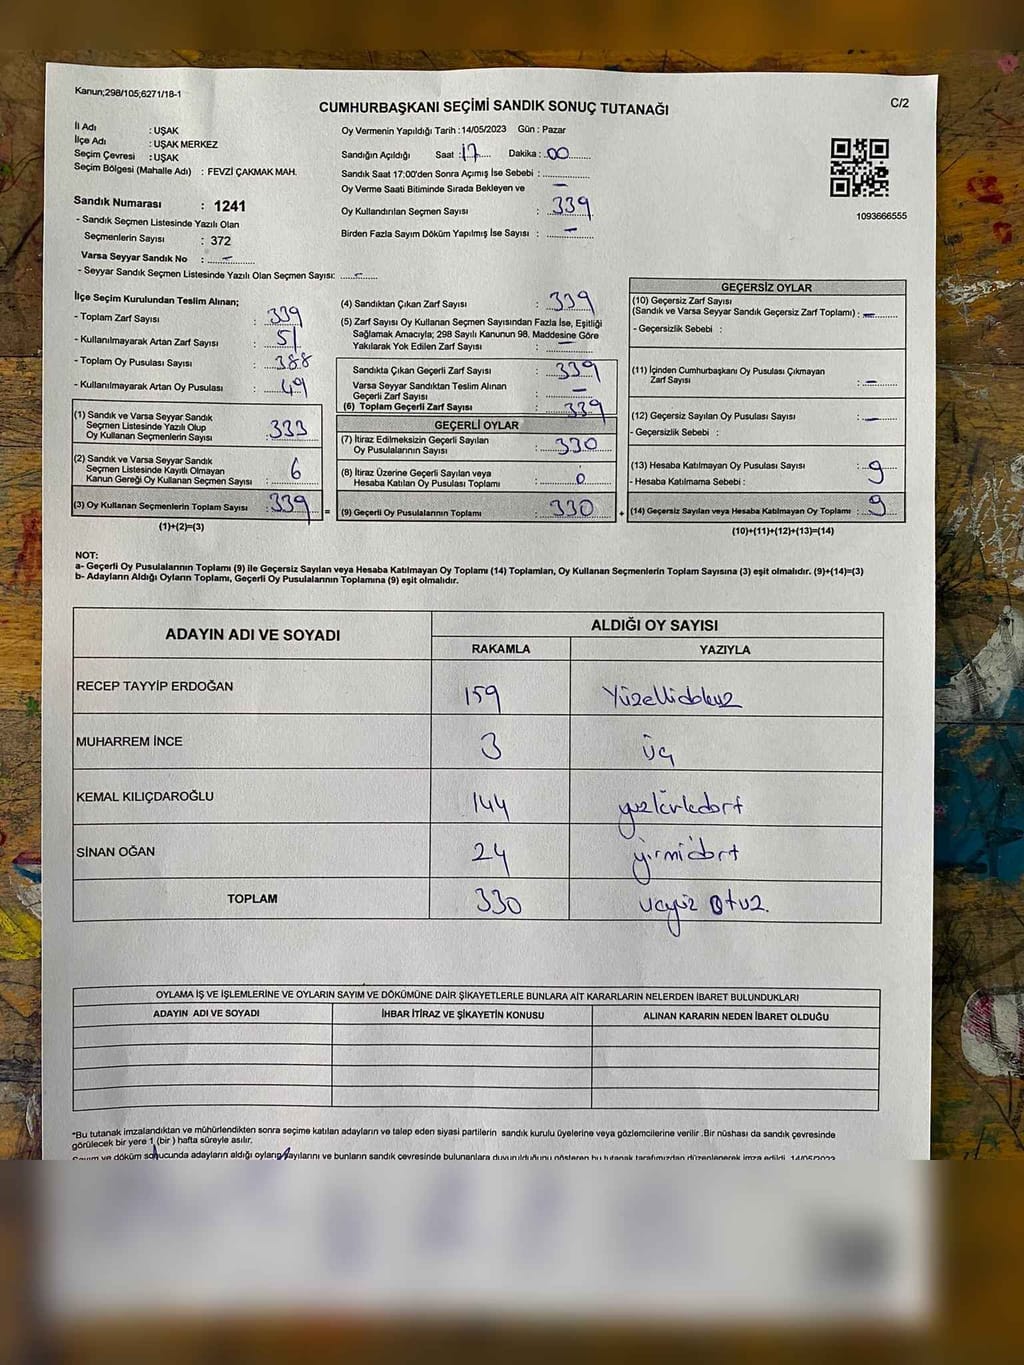 Kanun;298/105;6271/18-1
C/2
CUMHURBAŞKANI SEÇİMİ SANDIK SONUÇ TUTANAĞI
İl Adı : UŞAK
İlçe Adı : UŞAK MERKEZ
Seçim Çevresi : UŞAK
Seçim Bölgesi (Mahalle Adı) : FEVZİ ÇAKMAK MAH.
Sandık Numarası : 1241
- Sandık Seçmen Listesinde Yazılı Olan
Seçmenlerin Sayısı : 372
Varsa Seyyar Sandık No : -
- Seyyar Sandık Seçmen Listesinde Yazılı Olan Seçmen Sayısı: -
Oy Vermenin Yapıldığı Tarih : 14/05/2023 Gün : Pazar
Sandığın Açıldığı Saat : 17 Dakika : 00
Sandık Saat 17:00'den Sonra Açımış İse Sebebi :
Oy Verme Saati Bitiminde Sırada Bekleyen ve -
Oy Kullandırılan Seçmen Sayısı : 339
Birden Fazla Sayım Döküm Yapılmış İse Sayısı : -
1093666555
İlçe Seçim Kurulundan Teslim Alınan;
- Toplam Zarf Sayısı : 339
- Kullanılmayarak Artan Zarf Sayısı : 51
- Toplam Oy Pusulası Sayısı : 388
- Kullanılmayarak Artan Oy Pusulası : 49
(1) Sandık ve Varsa Seyyar Sandık
Seçmen Listesinde Yazılı Olup
Oy Kullanan Seçmenlerin Sayısı : 333
(2) Sandık ve Varsa Seyyar Sandık
Seçmen Listesinde Kayıtlı Olmayan
Kanun Gereği Oy Kullanan Seçmen Sayısı : 6
(3) Oy Kullanan Seçmenlerin Toplam Sayısı : 339 =
(1)+(2)=(3)
(4) Sandıktan Çıkan Zarf Sayısı : 339
(5) Zarf Sayısı Oy Kullanan Seçmen Sayısından Fazla İse, Eşitliği
Sağlamak Amacıyla; 298 Sayılı Kanunun 98. Maddesine Göre
Yakılarak Yok Edilen Zarf Sayısı : -
Sandıkta Çıkan Geçerli Zarf Sayısı : 339
Varsa Seyyar Sandıktan Teslim Alınan
Geçerli Zarf Sayısı : -
(6) Toplam Geçerli Zarf Sayısı : 339
GEÇERLİ OYLAR
(7) İtiraz Edilmeksizin Geçerli Sayılan
Oy Pusulalarının Sayısı : 330
(8) İtiraz Üzerine Geçerli Sayılan veya
Hesaba Katılan Oy Pusulası Toplamı : 0
(9) Geçerli Oy Pusulalarının Toplamı : 330 +
GEÇERSİZ OYLAR
(10) Geçersiz Zarf Sayısı
(Sandık ve Varsa Seyyar Sandık Geçersiz Zarf Toplamı) : -
- Geçersizlik Sebebi :
(11) İçinden Cumhurbaşkanı Oy Pusulası Çıkmayan
Zarf Sayısı : -
(12) Geçersiz Sayılan Oy Pusulası Sayısı : -
- Geçersizlik Sebebi :
(13) Hesaba Katılmayan Oy Pusulası Sayısı : 9
- Hesaba Katılmama Sebebi :
(14) Geçersiz Sayılan veya Hesaba Katılmayan Oy Toplamı : 9
(10)+(11)+(12)+(13)=(14)
NOT:
a- Geçerli Oy Pusulalarının Toplamı (9) ile Geçersiz Sayılan veya Hesaba Katılmayan Oy Toplamı (14) Toplamları, Oy Kullanan Seçmenlerin Toplam Sayısına (3) eşit olmalıdır. (9)+(14)=(3)
b- Adayların Aldığı Oyların Toplamı, Geçerli Oy Pusulalarının Toplamına (9) eşit olmalıdır.
ADAYIN ADI VE SOYADI
ALDIĞI OY SAYISI
RAKAMLA YAZIYLA
RECEP TAYYİP ERDOĞAN 159 Yüzellidokuz
MUHARREM İNCE 3 üç
KEMAL KILIÇDAROĞLU 144 yüzkırkdört
SİNAN OĞAN 24 yirmidört
TOPLAM 330 üçyüz otuz.
OYLAMA İŞ VE İŞLEMLERİNE VE OYLARIN SAYIM VE DÖKÜMÜNE DAİR ŞİKAYETLERLE BUNLARA AİT KARARLARIN NELERDEN İBARET BULUNDUKLARI
ADAYIN ADI VE SOYADI İHBAR İTİRAZ VE ŞİKAYETİN KONUSU ALINAN KARARIN NEDEN İBARET OLDUĞU
"Bu tutanak imzalandıktan ve mühürlendikten sonra seçime katılan adayların ve talep eden siyasi partilerin sandık kurulu üyelerine veya gözlemcilerine verilir .Bir nüshası da sandık çevresinde
görülecek bir yere 1 (bir ) hafta süreyle asılır.
Sayım ve döküm sonucunda adayların aldığı oyların sayılarını ve bunların sandık çevresinde bulunanlara duyurulduğunu gösteren bu tutanak tarafımızdan düzenlenerek imza edildi. 14/05/2023